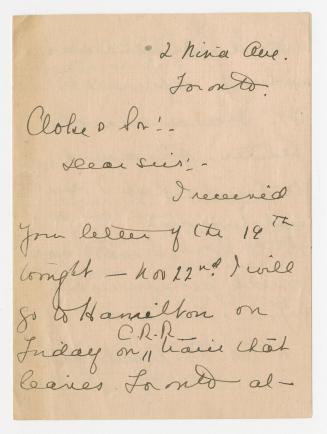 2 Nina Ave.
Toronto.
Cloke & Son:-
Dear Sirs:-
I received
your letter of the 19th
tonight — Nov 22nd. I will
go to Hamilton on
C.P.R.
Friday on " train that
leaves Toronto at -